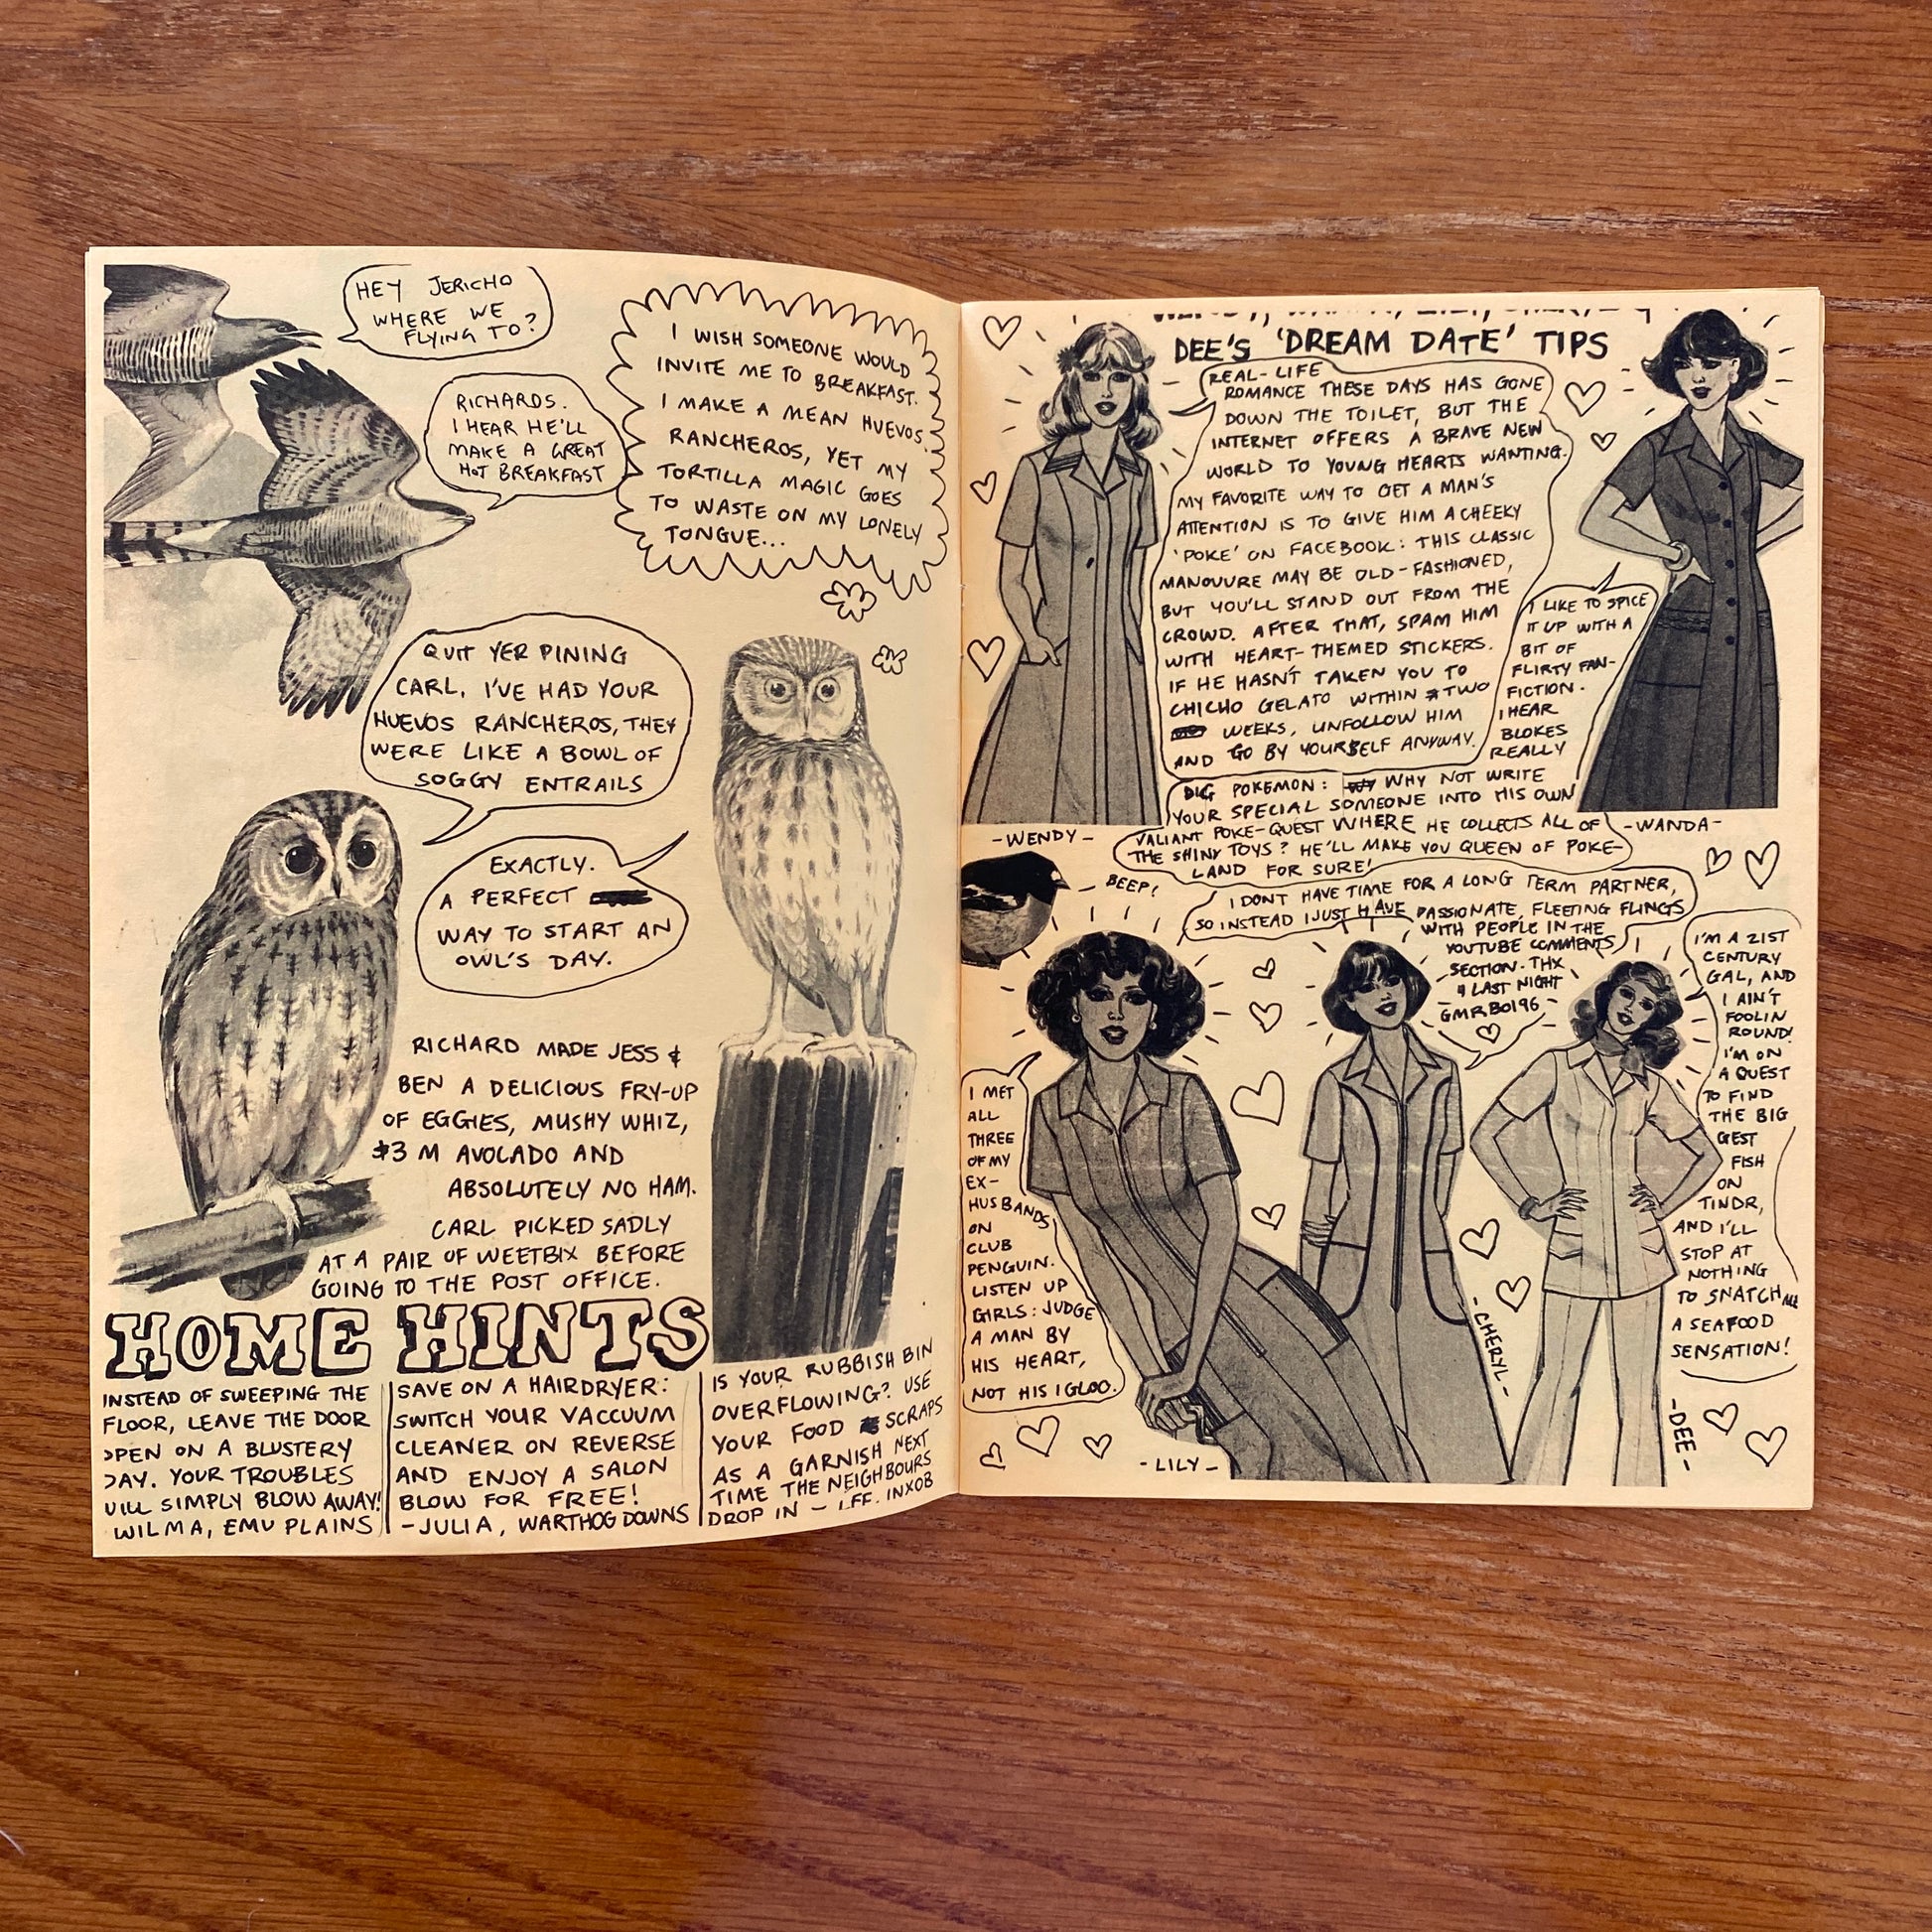 HEY JERICHO
WHERE WE
FLYING TO?
RICHARDS.
I HEAR HE'LL
MAKE A GREAT
HOT BREAKFAST
I WISH SOMEONE WOULD
INVITE ME TO BREAKFAST.
I MAKE A MEAN HUEVOS
RANCHEROS, YET MY
TORTILLA MAGIC GOES
TO WASTE ON MY LONELY
TONGUE...
QUIT YER PINING
CARL, I'VE HAD YOUR
HUEVOS RANCHEROS, THEY
WERE LIKE A BOWL OF
SOGGY ENTRAILS
EXACTLY.
A PERFECT
WAY TO START AN
OWL'S DAY.
RICHARD MADE JESS &
BEN A DELICIOUS FRY-UP
OF EGGIES, MUSHY WHIZ,
$3 M AVOCADO AND
ABSOLUTELY NO HAM.
CARL PICKED SADLY
AT A PAIR OF WEETBIX BEFORE
GOING TO THE POST OFFICE.
HOME HINTS
INSTEAD OF SWEEPING THE
FLOOR, LEAVE THE DOOR
OPEN ON A BLUSTERY
DAY. YOUR TROUBLES
WILL SIMPLY BLOW AWAY!
WILMA, EMU PLAINS
SAVE ON A HAIRDRYER:
SWITCH YOUR VACCUUM
CLEANER ON REVERSE
AND ENJOY A SALON
BLOW FOR FREE!
-JULIA, WARTHOG DOWNS
IS YOUR RUBBISH BIN
OVERFLOWING? USE
YOUR FOOD SCRAPS
AS A GARNISH NEXT
TIME THE NEIGHBOURS
DROP IN - LFF. INXOB
DEE'S 'DREAM DATE' TIPS
REAL-LIFE
ROMANCE THESE DAYS HAS GONE
DOWN THE TOILET, BUT THE
INTERNET OFFERS A BRAVE NEW
WORLD TO YOUNG HEARTS WANTING.
MY FAVORITE WAY TO GET A MAN'S
ATTENTION IS TO GIVE HIM A CHEEKY
'POKE' ON FACEBOOK: THIS CLASSIC
MANOUVRE MAY BE OLD-FASHIONED,
BUT YOU'LL STAND OUT FROM THE
CROWD. AFTER THAT, SPAM HIM
WITH HEART-THEMED STICKERS.
IF HE HASN'T TAKEN YOU TO
CHICHO GELATO WITHIN TWO
WEEKS, UNFOLLOW HIM
AND GO BY YOURSELF ANYWAY.
-WENDY-
I LIKE TO SPICE
IT UP WITH A
BIT OF
FLIRTY FAN-
FICTION.
I HEAR
BLOKES
REALLY
DIG POKEMON: WHY NOT WRITE
YOUR SPECIAL SOMEONE INTO HIS OWN
VALIANT POKE-QUEST WHERE HE COLLECTS ALL OF
THE SHINY TOYS? HE'LL MAKE YOU QUEEN OF POKE-
LAND FOR SURE!
-WANDA-
BEEP!
I DONT HAVE TIME FOR A LONG TERM PARTNER,
SO INSTEAD I JUST HAVE PASSIONATE, FLEETING FLINGS
WITH PEOPLE IN THE
YOUTUBE COMMENTS
SECTION. THX
4 LAST NIGHT
GMRBOI96
-CHERYL-
I MET
ALL
THREE
OF MY
EX-
HUSBANDS
ON
CLUB
PENGUIN.
LISTEN UP
GIRLS: JUDGE
A MAN BY
HIS HEART,
NOT HIS IGLOO.
-LILY-
I'M A 21ST
CENTURY
GAL, AND
I AIN'T
FOOLIN
ROUND!
I'M ON
A QUEST
TO FIND
THE BIG
GEST
FISH
ON
TINDR,
AND I'LL
STOP AT
NOTHING
TO SNATCH ME
A SEAFOOD
SENSATION!
-DEE-